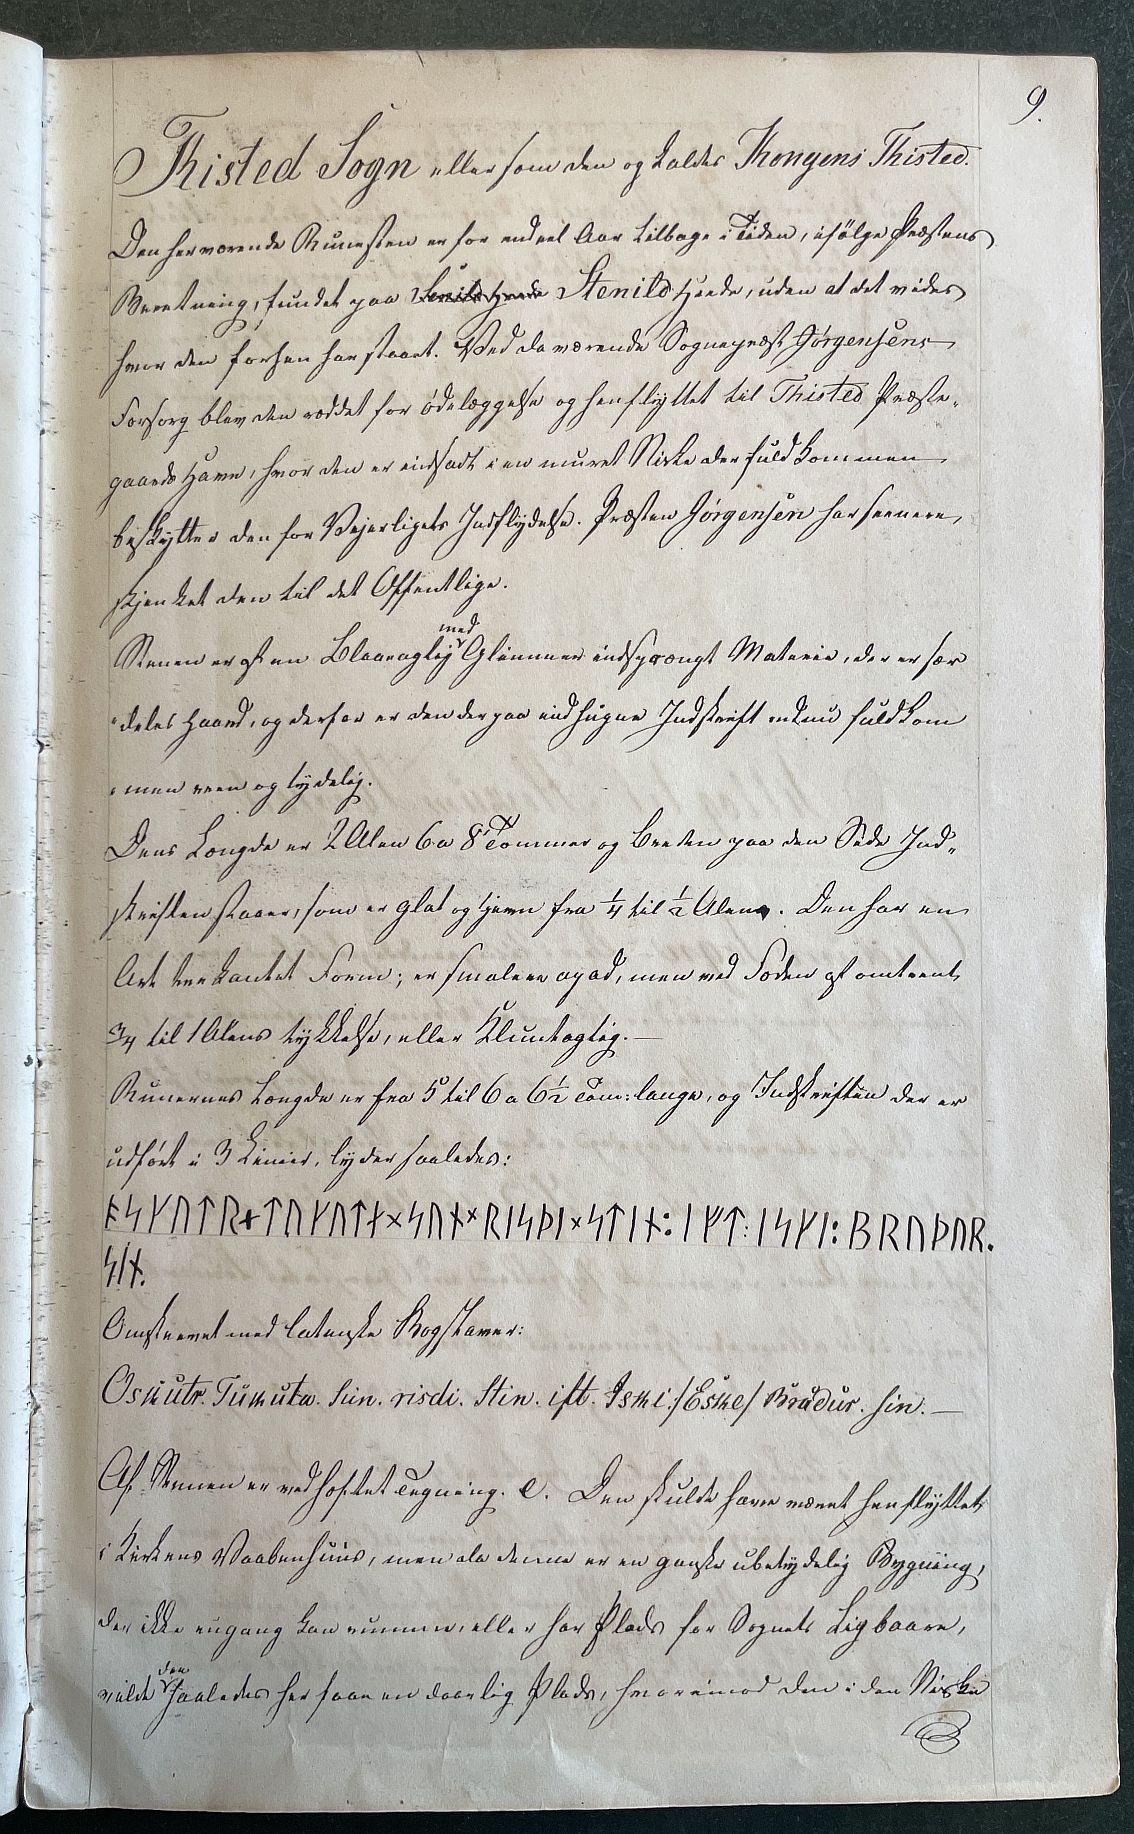 9.
Thisted Sogn eller som den og kaldes Kongens Thisted.
Den herværende Runesten er for endeel Aar tilbage i Tiden, ifølge Præstens
Beretning, fundet paa Stenild Heede, uden at det vides
hvor den forhen har staaet. Ved da værende Sognepræst Jørgensens
Forsorg blev den reddet for ødelæggelse og henflyttet til Thisted Præste„
gaards Have, hvor den er indsadt i en muret Niske der fuldkommen
beskytter den for Vejerligets Indflydelse. Præsten Jørgensen har seenere,
skjenket den til det Offentlige.
Stenen er af en Blaaeagtig med Glimmer indsprængt Materie, der er sær
„deles Haard, og derfor er den derpaa indhugne Indskrift endnu fuldkom
„men reen og tydelig.
Dens Længde er 2 Alen 6 a 8 Tommer og Breden paa den Side Ind„
skriften staaer, som er glat og jevn fra ¼ til ½ Alen. Den har en
Art trekantet Form; er smalere opad, men ved Foden af omtrent
¾ til 1 Alens tykkelse, eller Kluntagtig. —
Runernes Længde er fra 5 til 6 a 6½ Tom: lange, og Indskriften der er
udført i 3 Linier, lyder saaledes:
ᚬᛋᚴᚢᛏᚱ+ᛏᚢᚴᚢᛏᛅ×ᛋᚢᚾ×ᚱᛁᛋᚦᛁ×ᛋᛏᛁᚾ:ᛁᚠᛏ:ᛁᛋᚴᛁ:ᛒᚱᚢᚦᚢᚱ.
ᛋᛁᚾ.
Omskrevet med latinske Bogstaver:
Oskutr. Tukuta. Sun. risdi. Stin. ift. Iski:/Eske/ Brudur. sin. —
Af Stenen er vedhæftet Tegning. C. Den skulde have været henflyttet
i Kirkens Vaabenhuus, men da denne er en ganske ubetydelig Bygning,
der ikke engang kan rumme, eller har Plads for Sognets Ligbaare,
vilde den saaledes her faae en daarlig Plads, hvorimod den i den Niske